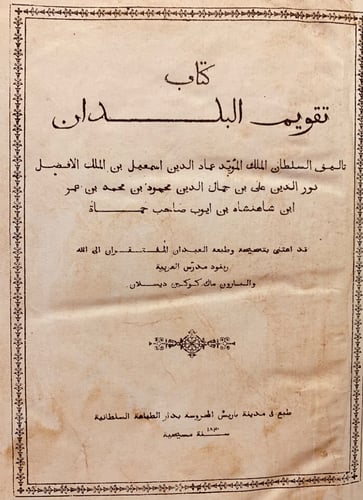 كتاب
تقويم البلدان
تاليف السلطان الملك المؤيد عماد الدين اسمعيل بن الملك الافضل
نور الدين على بن جمال الدين محمود بن محمد بن عمر
ابن شاهنشاه بن ايوب صاحب حماة
قد اعتنى بتصحيحه وطبعه العبدان المفتقران الى الله
رينود مدرس العربية
والبارون ماك كوكين ديسلان
طبع فى مدينة باريس المحروسة بدار الطباعة السلطانية
سنة ١٨٤٠ مسيحية